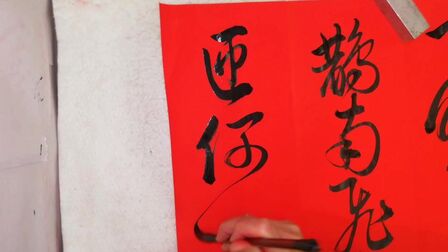 鵲南飛
匝何